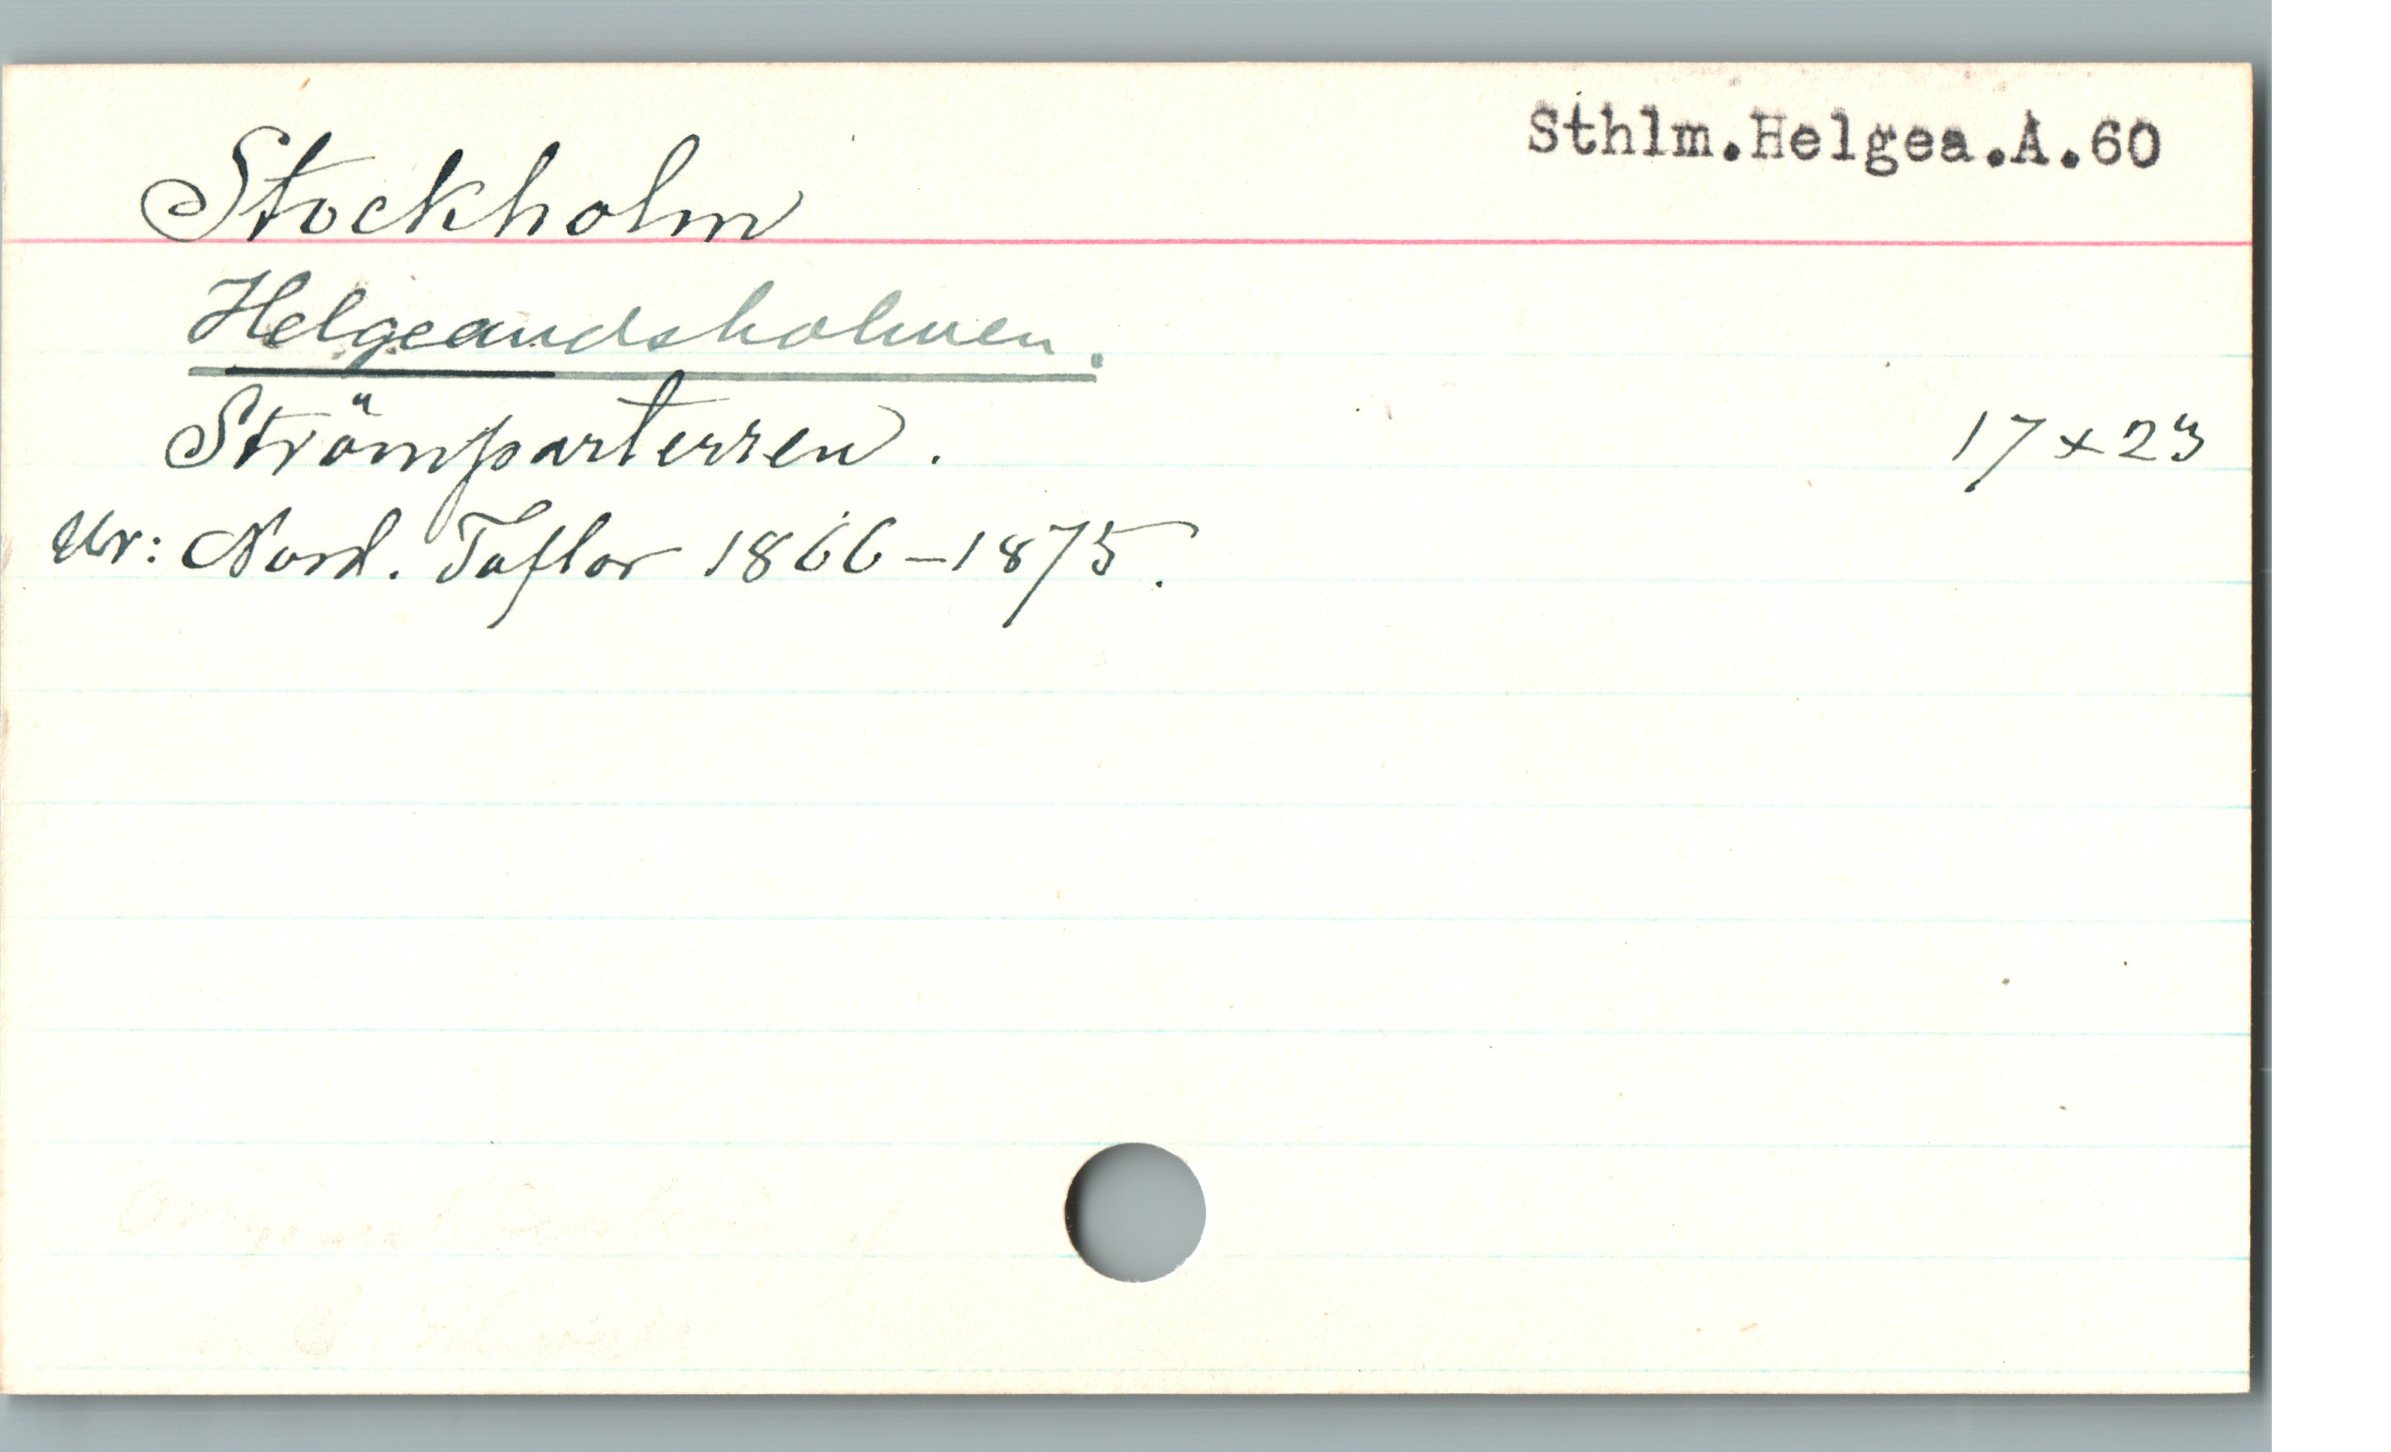 Sthlm.Helgea.A.60
Stockholm
Helgeandsholmen.
Strömparterren. 17 x 23
Ur: Nord. Taflor 1866-1875.